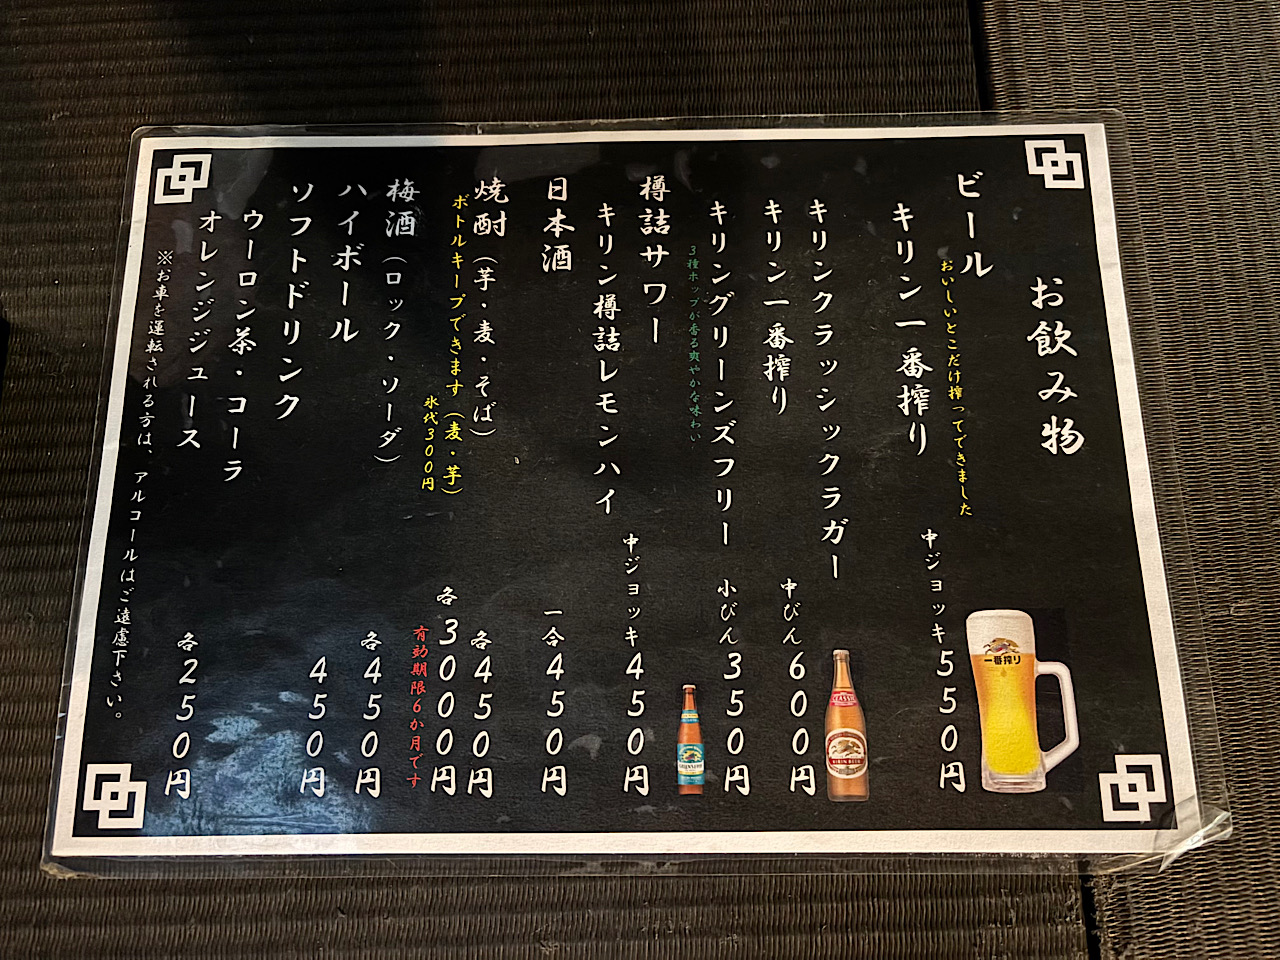 お飲み物
ビール
おいしいとこだけ搾ってできました
キリン一番搾り
中ジョッキ550円
一番搾り
キリンクラッシックラガー
キリン一番搾り
中びん600円
キリングリーンズフリー
小びん350円
3種ホップが香る爽やかな味わい
樽詰サワー
キリン樽詰レモンハイ
中ジョッキ450円
日本酒
一合450円
焼酎(芋・麦・そば)
各450円
ボトルキープできます(麦・芋)
各3000円
氷代300円
有効期限6か月です
梅酒(ロック・ソーダ)
各450円
ハイボール
450円
ソフトドリンク
ウーロン茶・コーラ
オレンジジュース
各250円
※お車を運転される方は、アルコールはご遠慮下さい。